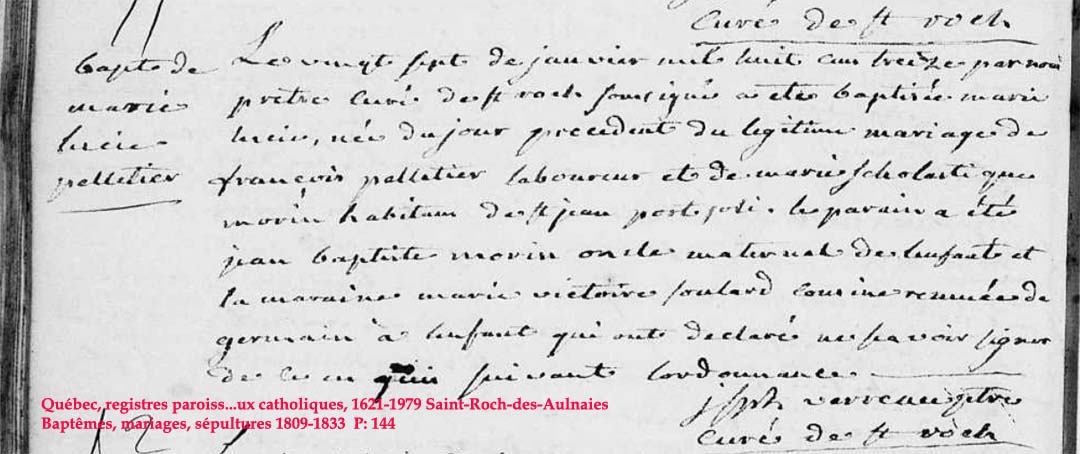 Curé de st roch
bapt de
marie
lucie
pelletier
Le vingt sept de janvier mil huit cens treize par moi
prêtre Curé de st roch soussigné a eté baptisée marie
lucie, née du jour precedent du legitime mariage de
françois pelletier laboureur et de marie scholastique
morin habitans de st jean port joli. le parain a été
jean baptiste morin oncle maternel de lenfant et
la maraine marie victoire soulard cousine remuée de
germain à lenfant qui ont declaré ne savoir signer
de ce suivant lordonnance
jsph verreau ptre
Curé de st roch
Québec, registres paroiss...ux catholiques, 1621-1979 Saint-Roch-des-Aulnaies
Baptêmes, mariages, sépultures 1809-1833 P: 144